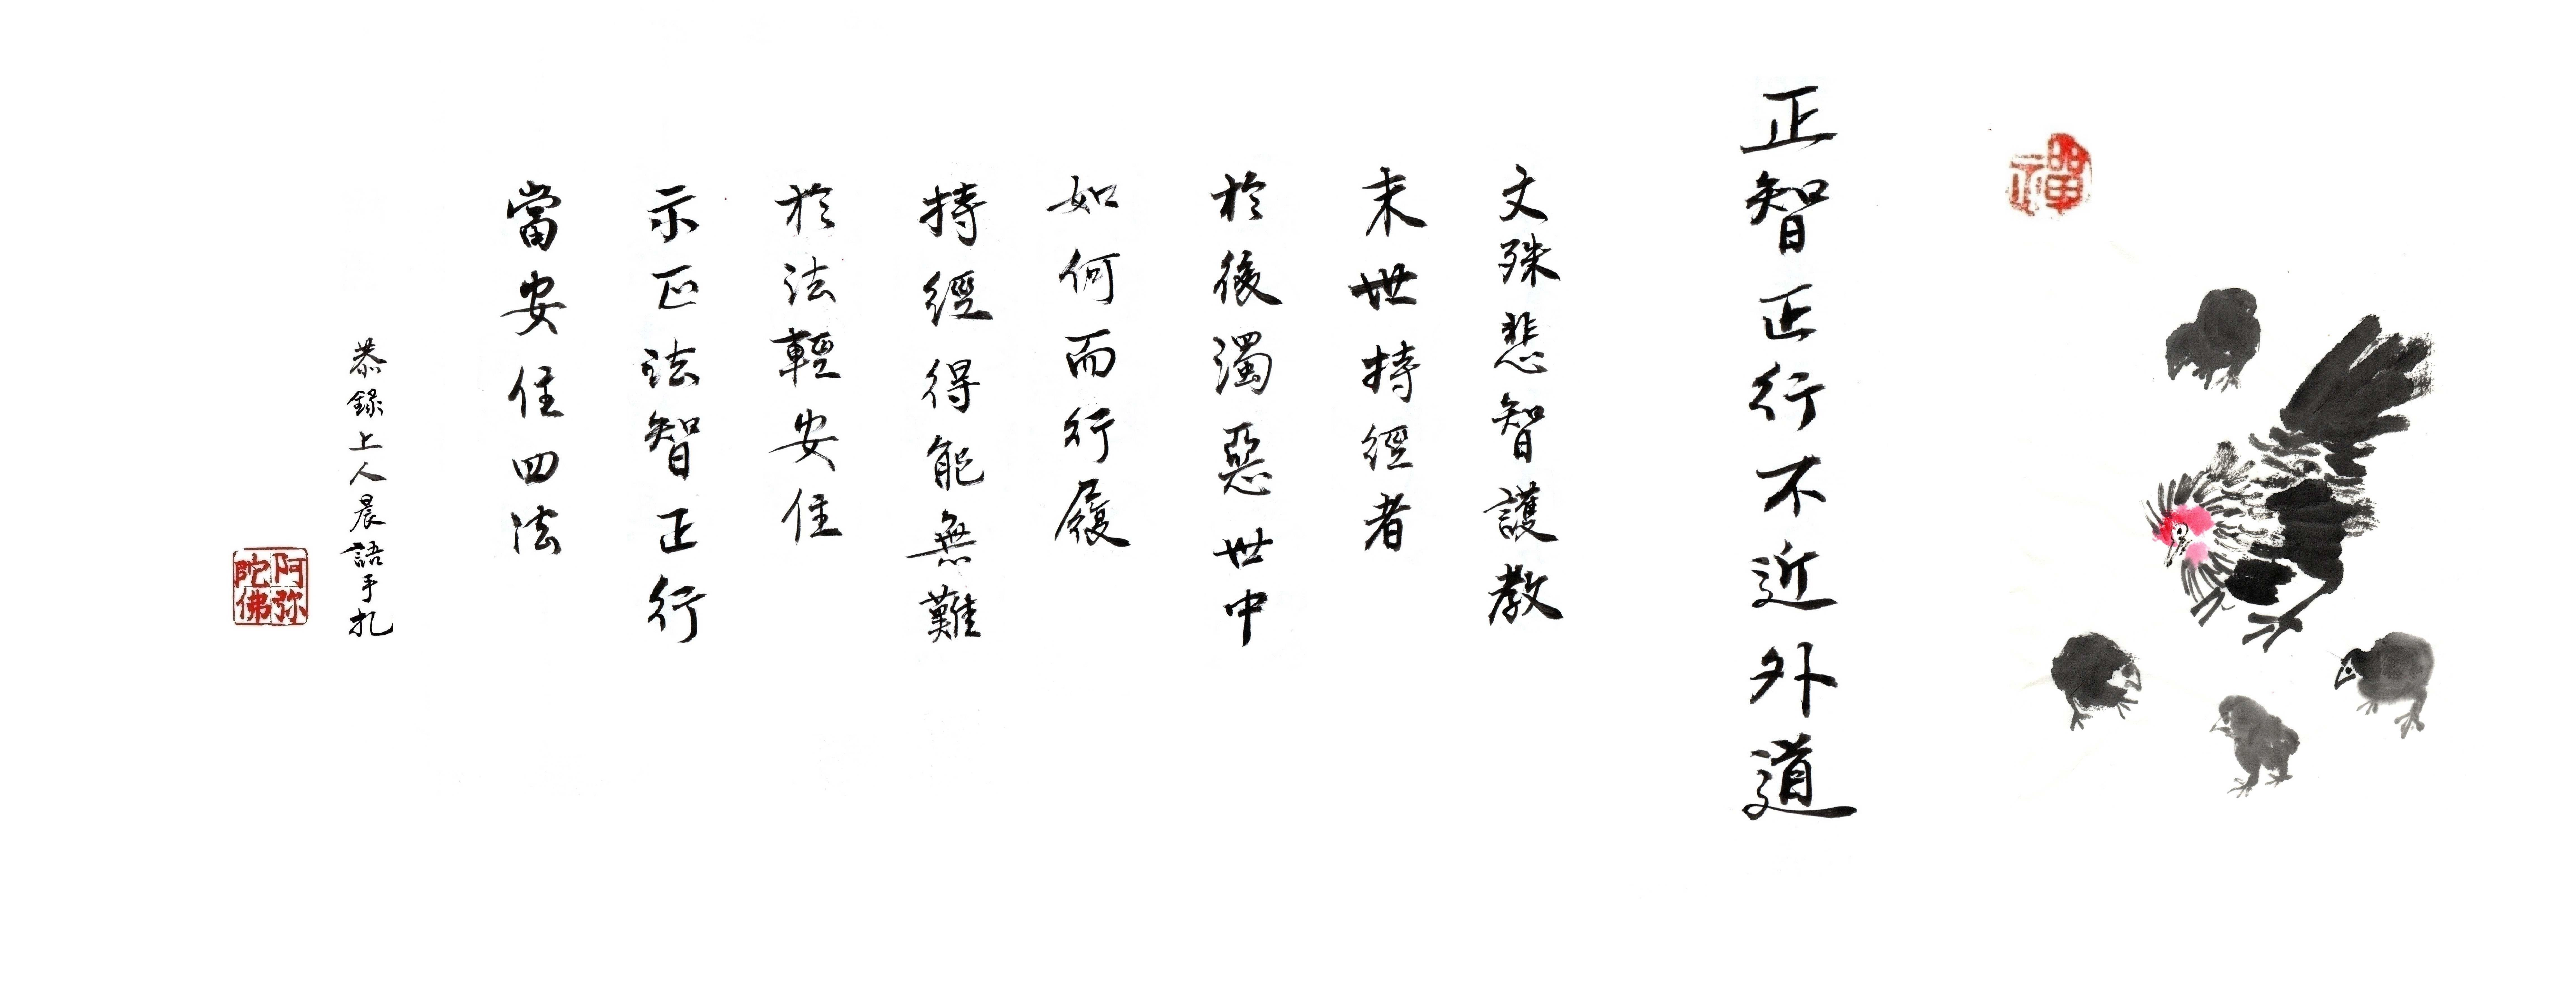 禪
正智正行不近外道
文殊悲智護教
末世持經者
於後濁惡世中
如何而行履
持經得能無難
於法輕安住
示正法智正行
當安住四法
恭錄上人晨語手扎
阿弥
陀佛